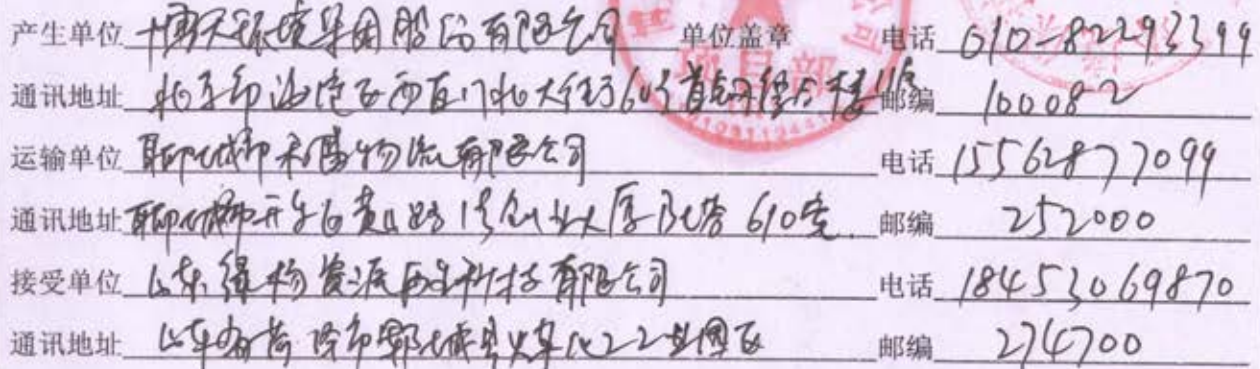 产生单位 博天环境集团股份有限公司 单位盖章 电话 010-82293399
通讯地址 北京市海淀区西直门北大街60号首钢综合楼 邮编 100082
运输单位 聊城市 物流有限公司 电话 15562877099
通讯地址 聊城市开发区黄山路1号创业大厦B塔610室 邮编 252000
接受单位 山东 资源再生科技有限公司 电话 18453069870
通讯地址 山东省菏泽市郓城县 化工工业园区 邮编 274700
项目部